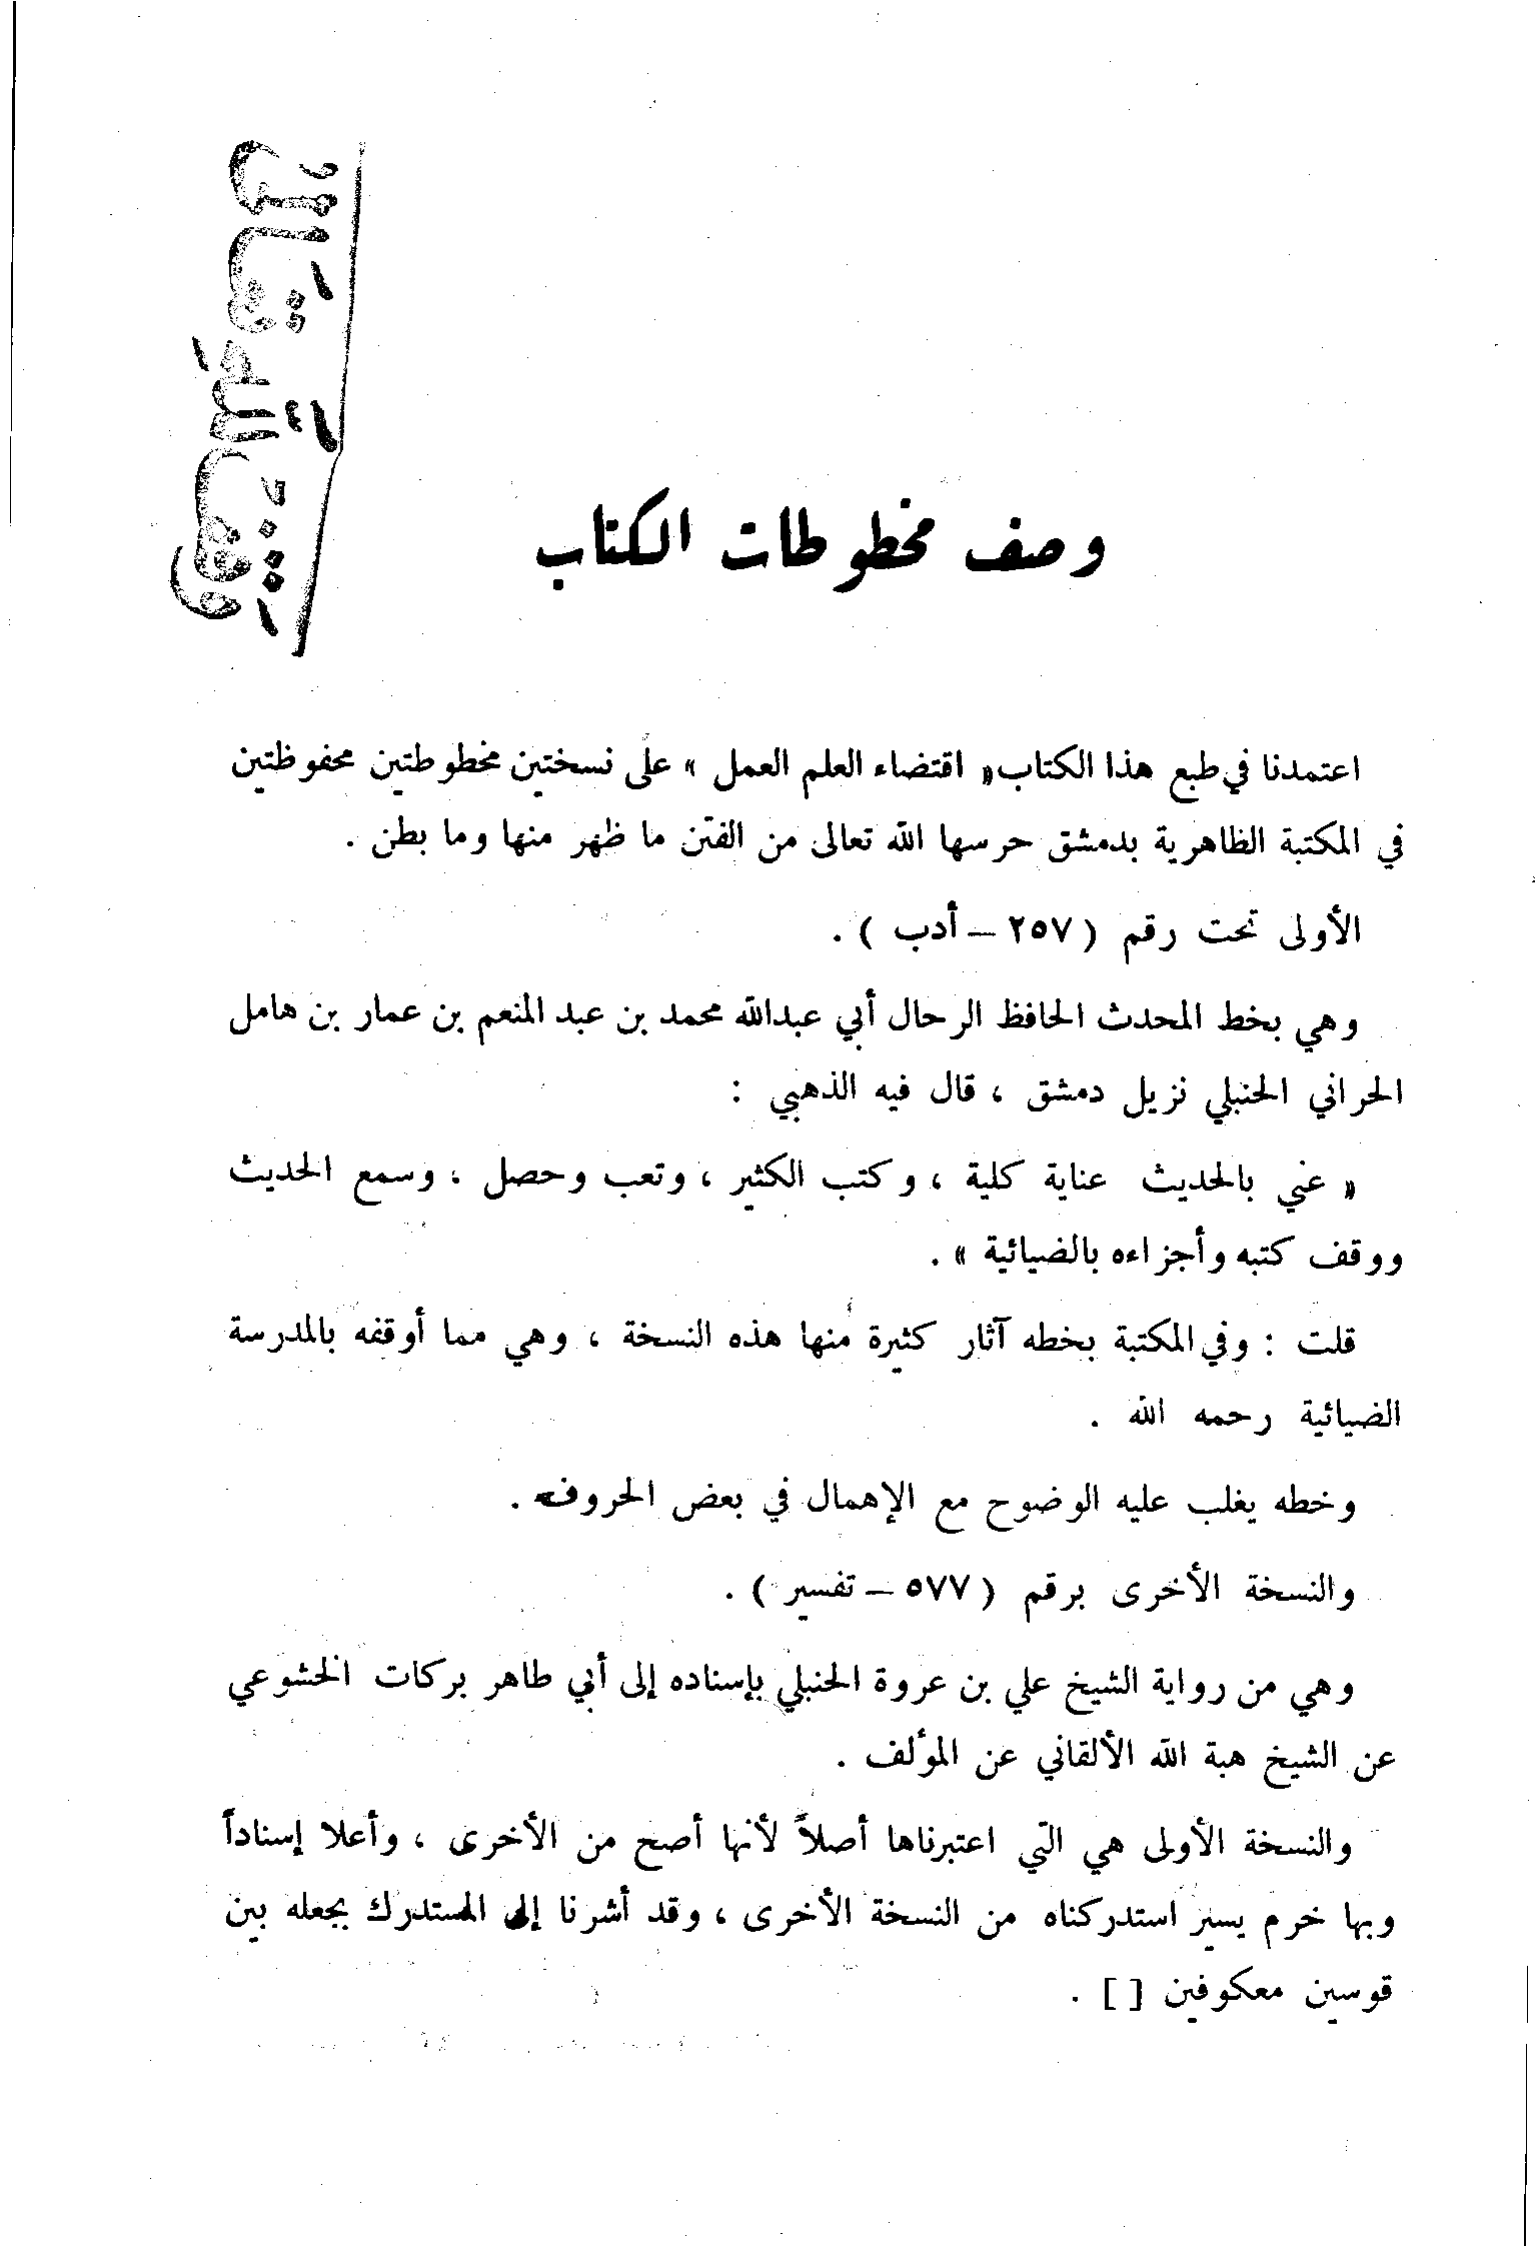 وقف لله تعالى
وصف مخطوطات الكتاب
اعتمدنا في طبع هذا الكتاب « اقتضاء العلم العمل » على نسختين مخطوطتين محفوظتين
في المكتبة الظاهرية بدمشق حرسها الله تعالى من الفتن ما ظهر منها وما بطن .
الأولى تحت رقم ( ٢٥٧ – أدب ) .
وهي بخط المحدث الحافظ الرحال أبي عبدالله محمد بن عبد المنعم بن عمار بن هامل
الحراني الحنبلي نزيل دمشق ، قال فيه الذهبي :
« عني بالحديث عناية كلية ، وكتب الكثير ، وتعب وحصل ، وسمع الحديث
ووقف كتبه وأجزاءه بالضيائية » .
قلت : وفي المكتبة بخطه آثار كثيرة منها هذه النسخة ، وهي مما أوقفه بالمدرسة
الضيائية رحمه الله .
وخطه يغلب عليه الوضوح مع الإهمال في بعض الحروف .
والنسخة الأخرى برقم ( ٥٧٧ – تفسير ) .
وهي من رواية الشيخ علي بن عروة الحنبلي بإسناده إلى أبي طاهر بركات الخشوعي
عن الشيخ هبة الله الألقاني عن المؤلف .
والنسخة الأولى هي التي اعتبرناها أصلاً لأنها أصح من الأخرى ، وأعلا إسناداً
وبها خرم يسير استدركناه من النسخة الأخرى ، وقد أشرنا إلى المستدرك بجعله بين
قوسين معكوفين [ ] .